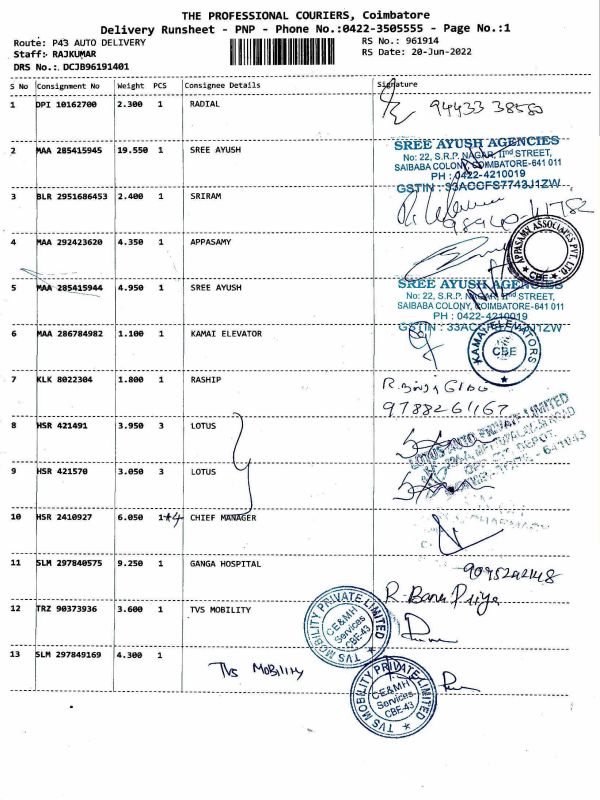 THE PROFESSIONAL COURIERS, Coimbatore
Delivery Runsheet - PNP - Phone No.:0422-3505555 - Page No.:1
Route: P43 AUTO DELIVERY
RS No.: 961914
Staff: RAJKUMAR
RS Date: 20-Jun-2022
DRS No.: DCJB96191401
S No Consignment No Weight PCS Consignee Details Signature
1 DPI 10162700 2.300 1 RADIAL 94433 38550
2 MAA 285415945 19.550 1 SREE AYUSH
SREE AYUSH AGENCIES
No: 22, S.R.P. NAGAR, IInd STREET,
SAIBABA COLONY, COIMBATORE-641 011
PH : 0422-4210019
GSTIN : 33ACCFS7743J1ZW
3 BLR 2951686453 2.400 1 SRIRAM
4 MAA 292423620 4.350 1 APPASAMY
APPASAMY ASSOCIATES PVT. LTD.
CBE
5 MAA 285415944 4.950 1 SREE AYUSH
SREE AYUSH AGENCIES
No: 22, S.R.P. NAGAR, IInd STREET,
SAIBABA COLONY, COIMBATORE-641 011
PH : 0422-4210019
6 MAA 286784982 1.100 1 KAMAI ELEVATOR
CBE
7 KLK 8022304 1.800 1 RASHIP
9788261167
8 HSR 421491 3.950 3 LOTUS
9 HSR 421570 3.050 3 LOTUS
10 HSR 2410927 6.050 1+4 CHIEF MANAGER
11 SLM 297840575 9.250 1 GANGA HOSPITAL
R. Banu Priya
12 TRZ 90373936 3.600 1 TVS MOBILITY
TVS MOBILITY PRIVATE LIMITED
CE&MH
Services
CBE-43
13 SLM 297849169 4.300 1
TVS MOBILITY
TVS MOBILITY PRIVATE LIMITED
CE&MH
Services
CBE-43